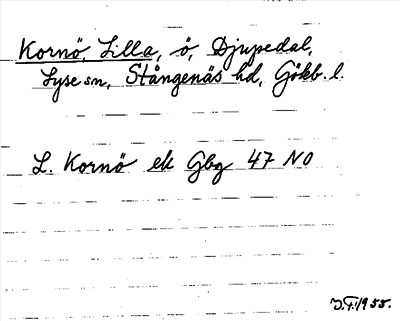 Kornö, Lilla, ö, Djupedal,
Lyse sn, Stångenäs hd, Gökb. l.
L. Kornö ek Gbg 47 NO
J.F. 1955.